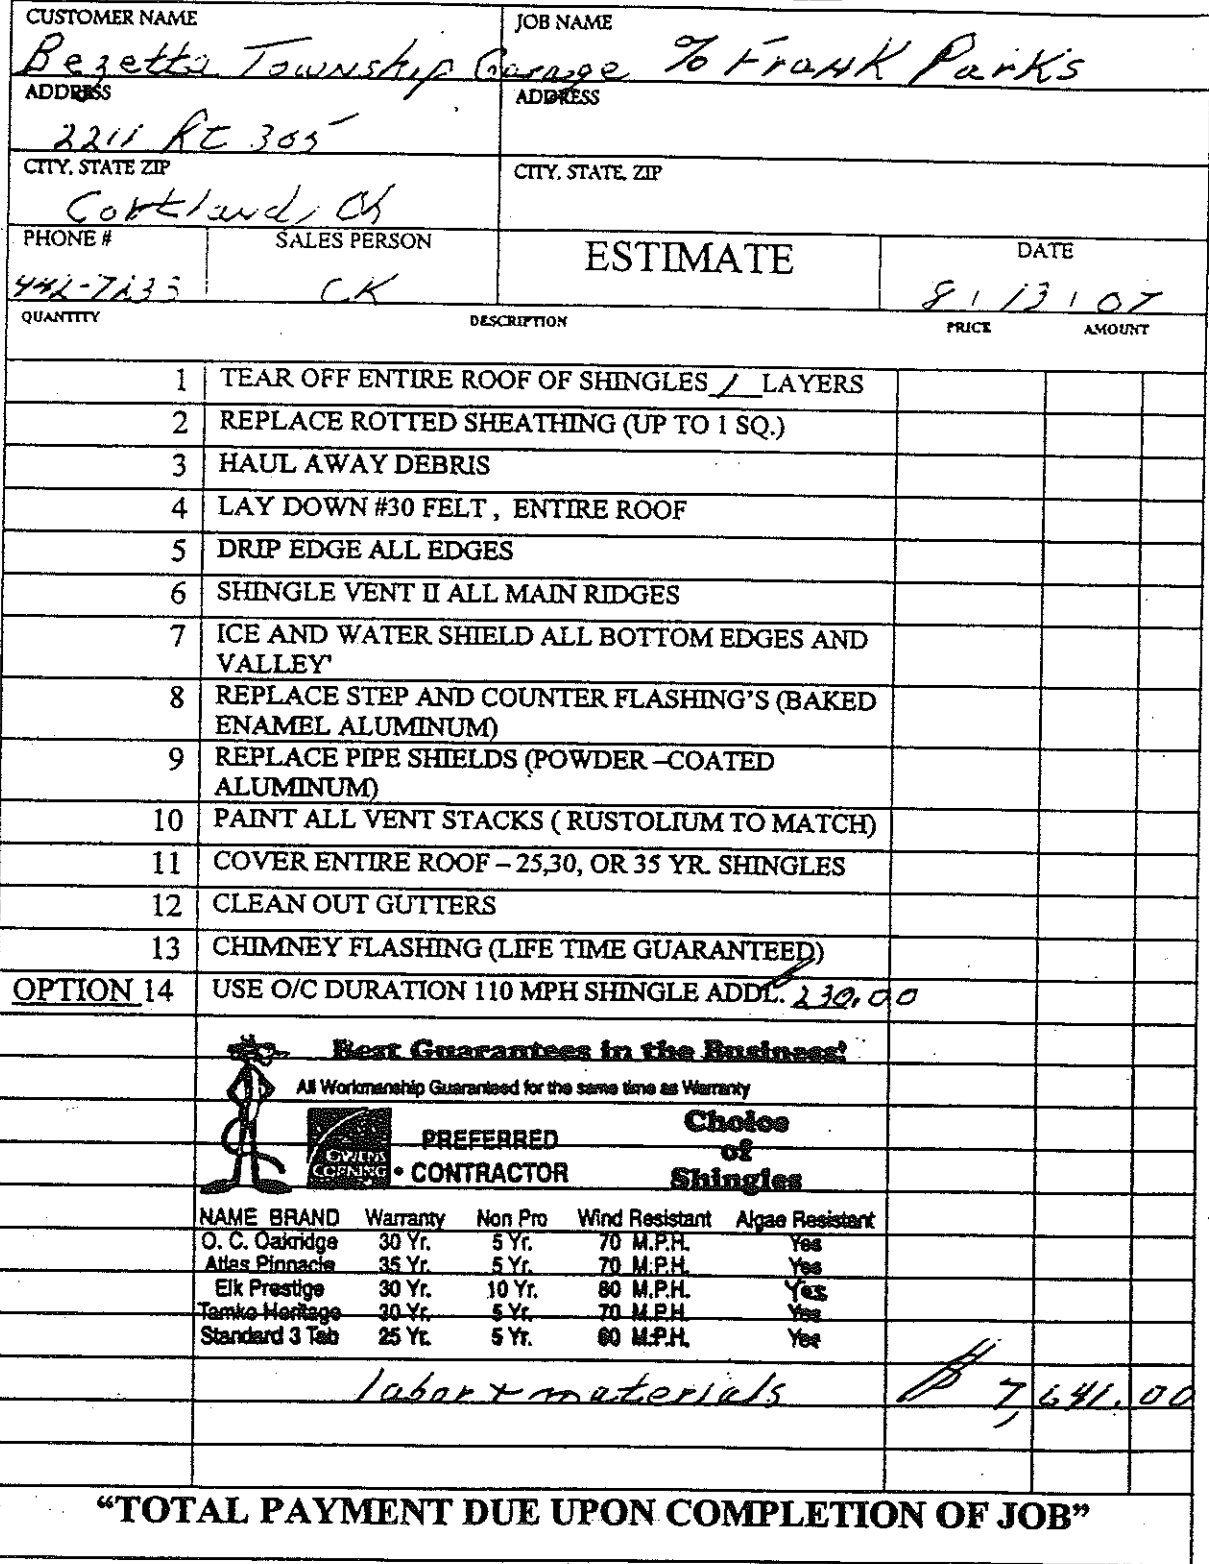 CUSTOMER NAME JOB NAME
Bezetta Township Garage % Frank Parks
ADDRESS ADDRESS
2211 Rt 305
CITY, STATE ZIP CITY, STATE, ZIP
Cortland, Oh
PHONE # SALES PERSON ESTIMATE DATE
CK 8 / 13 / 07
QUANTITY DESCRIPTION PRICE AMOUNT
1 TEAR OFF ENTIRE ROOF OF SHINGLES 1 LAYERS
2 REPLACE ROTTED SHEATHING (UP TO 1 SQ.)
3 HAUL AWAY DEBRIS
4 LAY DOWN #30 FELT , ENTIRE ROOF
5 DRIP EDGE ALL EDGES
6 SHINGLE VENT II ALL MAIN RIDGES
7 ICE AND WATER SHIELD ALL BOTTOM EDGES AND
VALLEY'
8 REPLACE STEP AND COUNTER FLASHING'S (BAKED
ENAMEL ALUMINUM)
9 REPLACE PIPE SHIELDS (POWDER –COATED
ALUMINUM)
10 PAINT ALL VENT STACKS ( RUSTOLIUM TO MATCH)
11 COVER ENTIRE ROOF – 25,30, OR 35 YR. SHINGLES
12 CLEAN OUT GUTTERS
13 CHIMNEY FLASHING (LIFE TIME GUARANTEED)
OPTION 14 USE O/C DURATION 110 MPH SHINGLE ADDL. $230.00
Best Guarantees in the Business!
All Workmanship Guaranteed for the same time as Warranty
OWENS CORNING PREFERRED • CONTRACTOR
Choice
of
Shingles
NAME BRAND Warranty Non Pro Wind Resistant Algae Resistant
O. C. Oakridge 30 Yr. 5 Yr. 70 M.P.H. Yes
Atlas Pinnacle 35 Yr. 5 Yr. 70 M.P.H. Yes
Elk Prestige 30 Yr. 10 Yr. 80 M.P.H. Yes
Tamko Heritage 30 Yr. 5 Yr. 70 M.P.H. Yes
Standard 3 Tab 25 Yr. 5 Yr. 60 M.P.H. Yes
labor + materials $ 7,641.00
“TOTAL PAYMENT DUE UPON COMPLETION OF JOB”